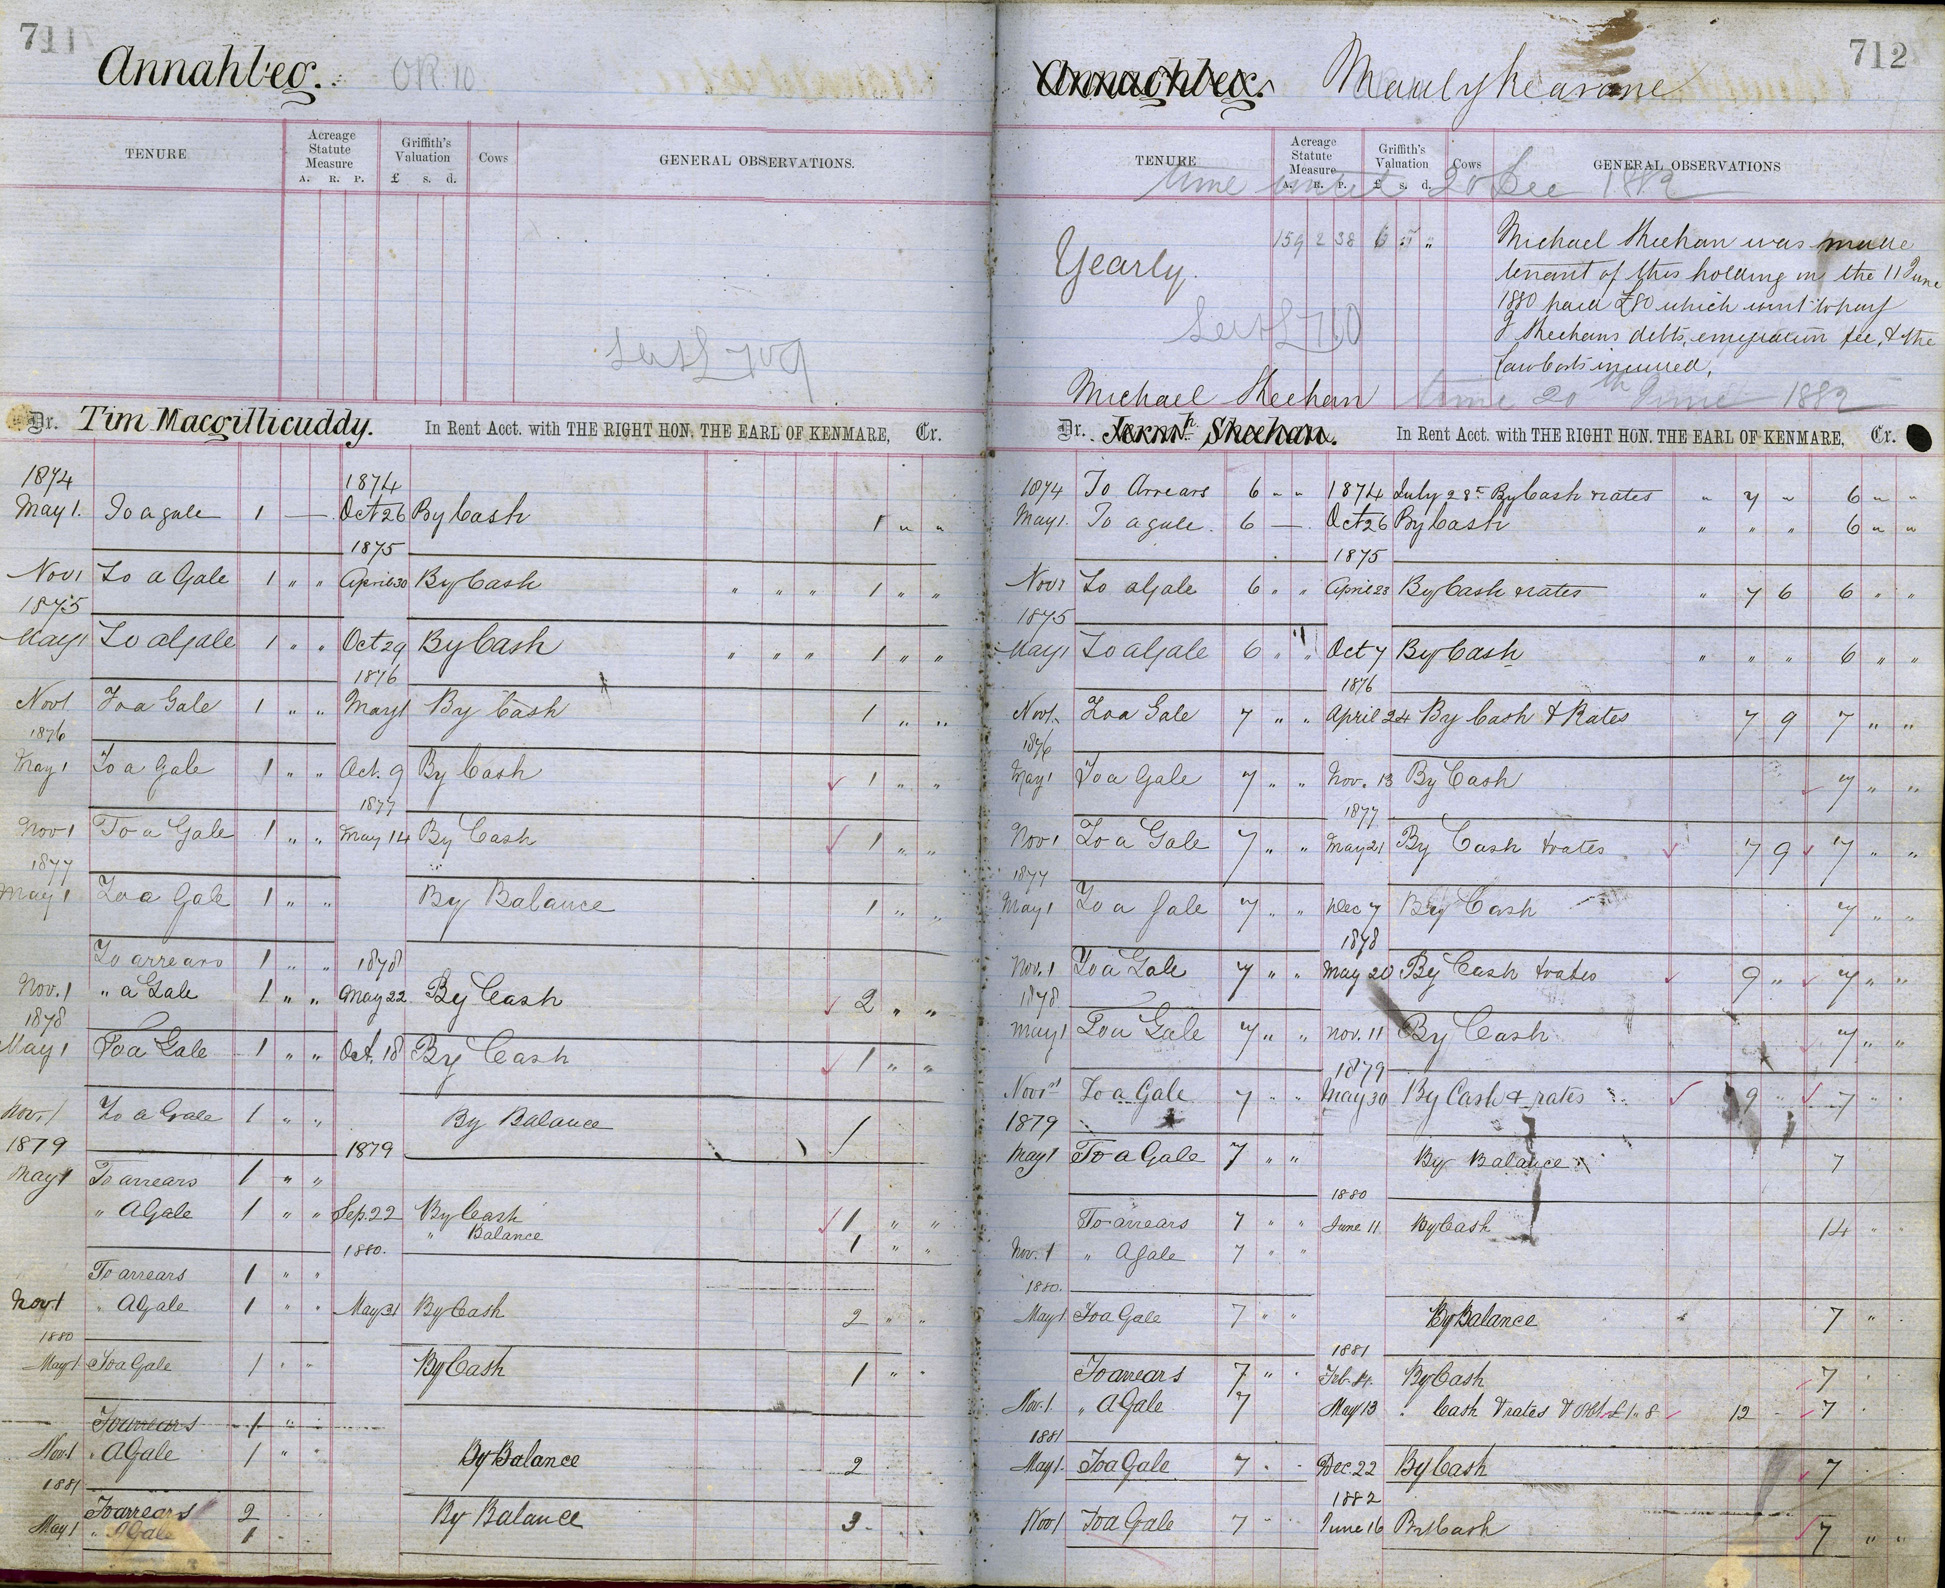 711
Annahbeg. OR 10
TENURE Acreage Statute Measure A. R. P. Griffith's Valuation £ s. d. Cows GENERAL OBSERVATIONS.
Dr. Tim Macgillicuddy. In Rent Acct. with THE RIGHT HON. THE EARL OF KENMARE, Cr.
1874 1874
May 1. To a gale 1 — Oct 26 By Cash 1 " "
1875
Nov 1 To a Gale 1 " " April 30 By Cash " " " 1 " "
1875
May 1 To a Gale 1 " " Oct 29 By Cash " " " 1 " "
1876
Nov 1. To a Gale 1 " " May 1 By Cash 1 " "
1876
May 1 To a Gale 1 " " Oct. 9 By Cash 1 " "
1877
Nov 1 To a Gale 1 " " May 14 By Cash 1 " "
1877
May 1 To a Gale 1 " " By Balance 1 " "
To arrears 1 " " 1878
Nov. 1 " a Gale 1 " " May 22 By Cash 2 " "
1878
May 1 To a Gale 1 " " Oct. 18 By Cash 1 " "
Nov. 1 To a Gale 1 " " By Balance 1
1879 1879
May 1 To arrears 1 " "
" A Gale 1 " " Sep. 22 By Cash 1 " "
" Balance 1 " "
1880.
To arrears 1 " "
Nov 1 " A Gale 1 " " May 31 By Cash 2 " "
1880
May 1 To a Gale 1 " " By Cash 1 " "
To arrears 1 "
Nov 1 " A Gale 1 " " By Balance 2
1881
To arrears 2
May 1 " A Gale 1 By Balance 3
712
Annaghbeg.
TENURE Acreage Statute Measure A. R. P. Griffith's Valuation £ s. d. Cows GENERAL OBSERVATIONS
time until 20 Dec 1882
Yearly. 159 2 38 6 5 "
Michael Sheehan was made
tenant of this holding on the 11 June
1880 paid £80 which went to pay
J Sheehans debts, emigration fee, & the
Law Costs incurred.
Michael Sheehan time 20th June 1882
Dr. Sheehan. In Rent Acct. with THE RIGHT HON. THE EARL OF KENMARE, Cr.
1874 To Arrears 6 " " 1874 July 28 By Cash rates " 7 " 6 " "
May 1. To a gale. 6 — Oct 26 By Cash " " " 6 " "
1875
Nov 1 To a Gale 6 " " April 23 By Cash & rates " 7 6 6 " "
1875
May 1 To a Gale 6 " " Oct 7 By Cash " " " 6 " "
1876
Nov 1. To a Gale 7 " " April 24 By Cash & Rates 7 9 7 " "
1876
May 1 To a Gale 7 " " Nov. 13 By Cash 7 " "
1877
Nov 1 To a Gale 7 " " May 21 By Cash & rates 7 9 7 " "
1877
May 1 To a Gale 7 " " Dec 7 By Cash 7 " "
1878
Nov. 1 To a Gale 7 " " May 20 By Cash & rates 9 " 7 " "
1878
May 1 To a Gale 7 " " Nov. 11 By Cash 7 " "
1879
Nov 1st To a Gale 7 " " May 30 By Cash & rates 9 " 7 " "
1879
May 1 To a Gale 7 " " By Balance 7
1880
To arrears 7 " " June 11 By Cash 14 " "
Nov. 1 " A gale 7 " "
1880.
May 1 To a Gale 7 " " By Balance 7 "
1881
To arrears 7 " Feb. 14. By Cash 7
Nov. 1. " A Gale 7 May 13 " Cash & rates 12 7
1881
May 1. To a Gale 7 Dec. 22 By Cash 7
1882
Nov 1 To a Gale 7 " June 16 By Cash 7 " "